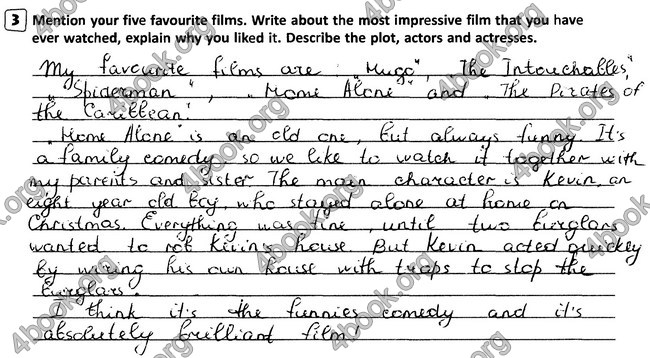 3 Mention your five favourite films. Write about the most impressive film that you have
ever watched, explain why you liked it. Describe the plot, actors and actresses.
My favourite films are „Hugo", „The Intouchables",
„Spiderman", „Home Alone" and „The Pirates of
the Caribbean."
„Home Alone" is an old one, but always funny. It's
a family comedy, so we like to watch it together with
my parents and sister. The main character is Kevin, an
eight year old boy, who stayed alone at home on
Christmas. Everything was fine, until two burglars
wanted to rob Kevin's house. But Kevin acted quickey
by wiring his own house with traps to stop the
burglars.
I think it's the funnies comedy and it's
absolutely brilliant film!
4book.org